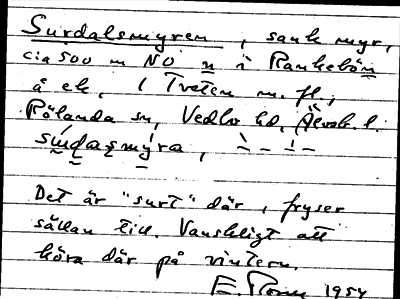 Surdalsmyren, sank myr,
c:a 500 m NO n i Rankebön
å ek. 1 Tveten m. fl.,
Rölanda sn, Vedbo hd, Älvsb. l.
Det är "surt" där, fryser
sällan till. Vanskligt att
köra där på vintern.
E. 1954